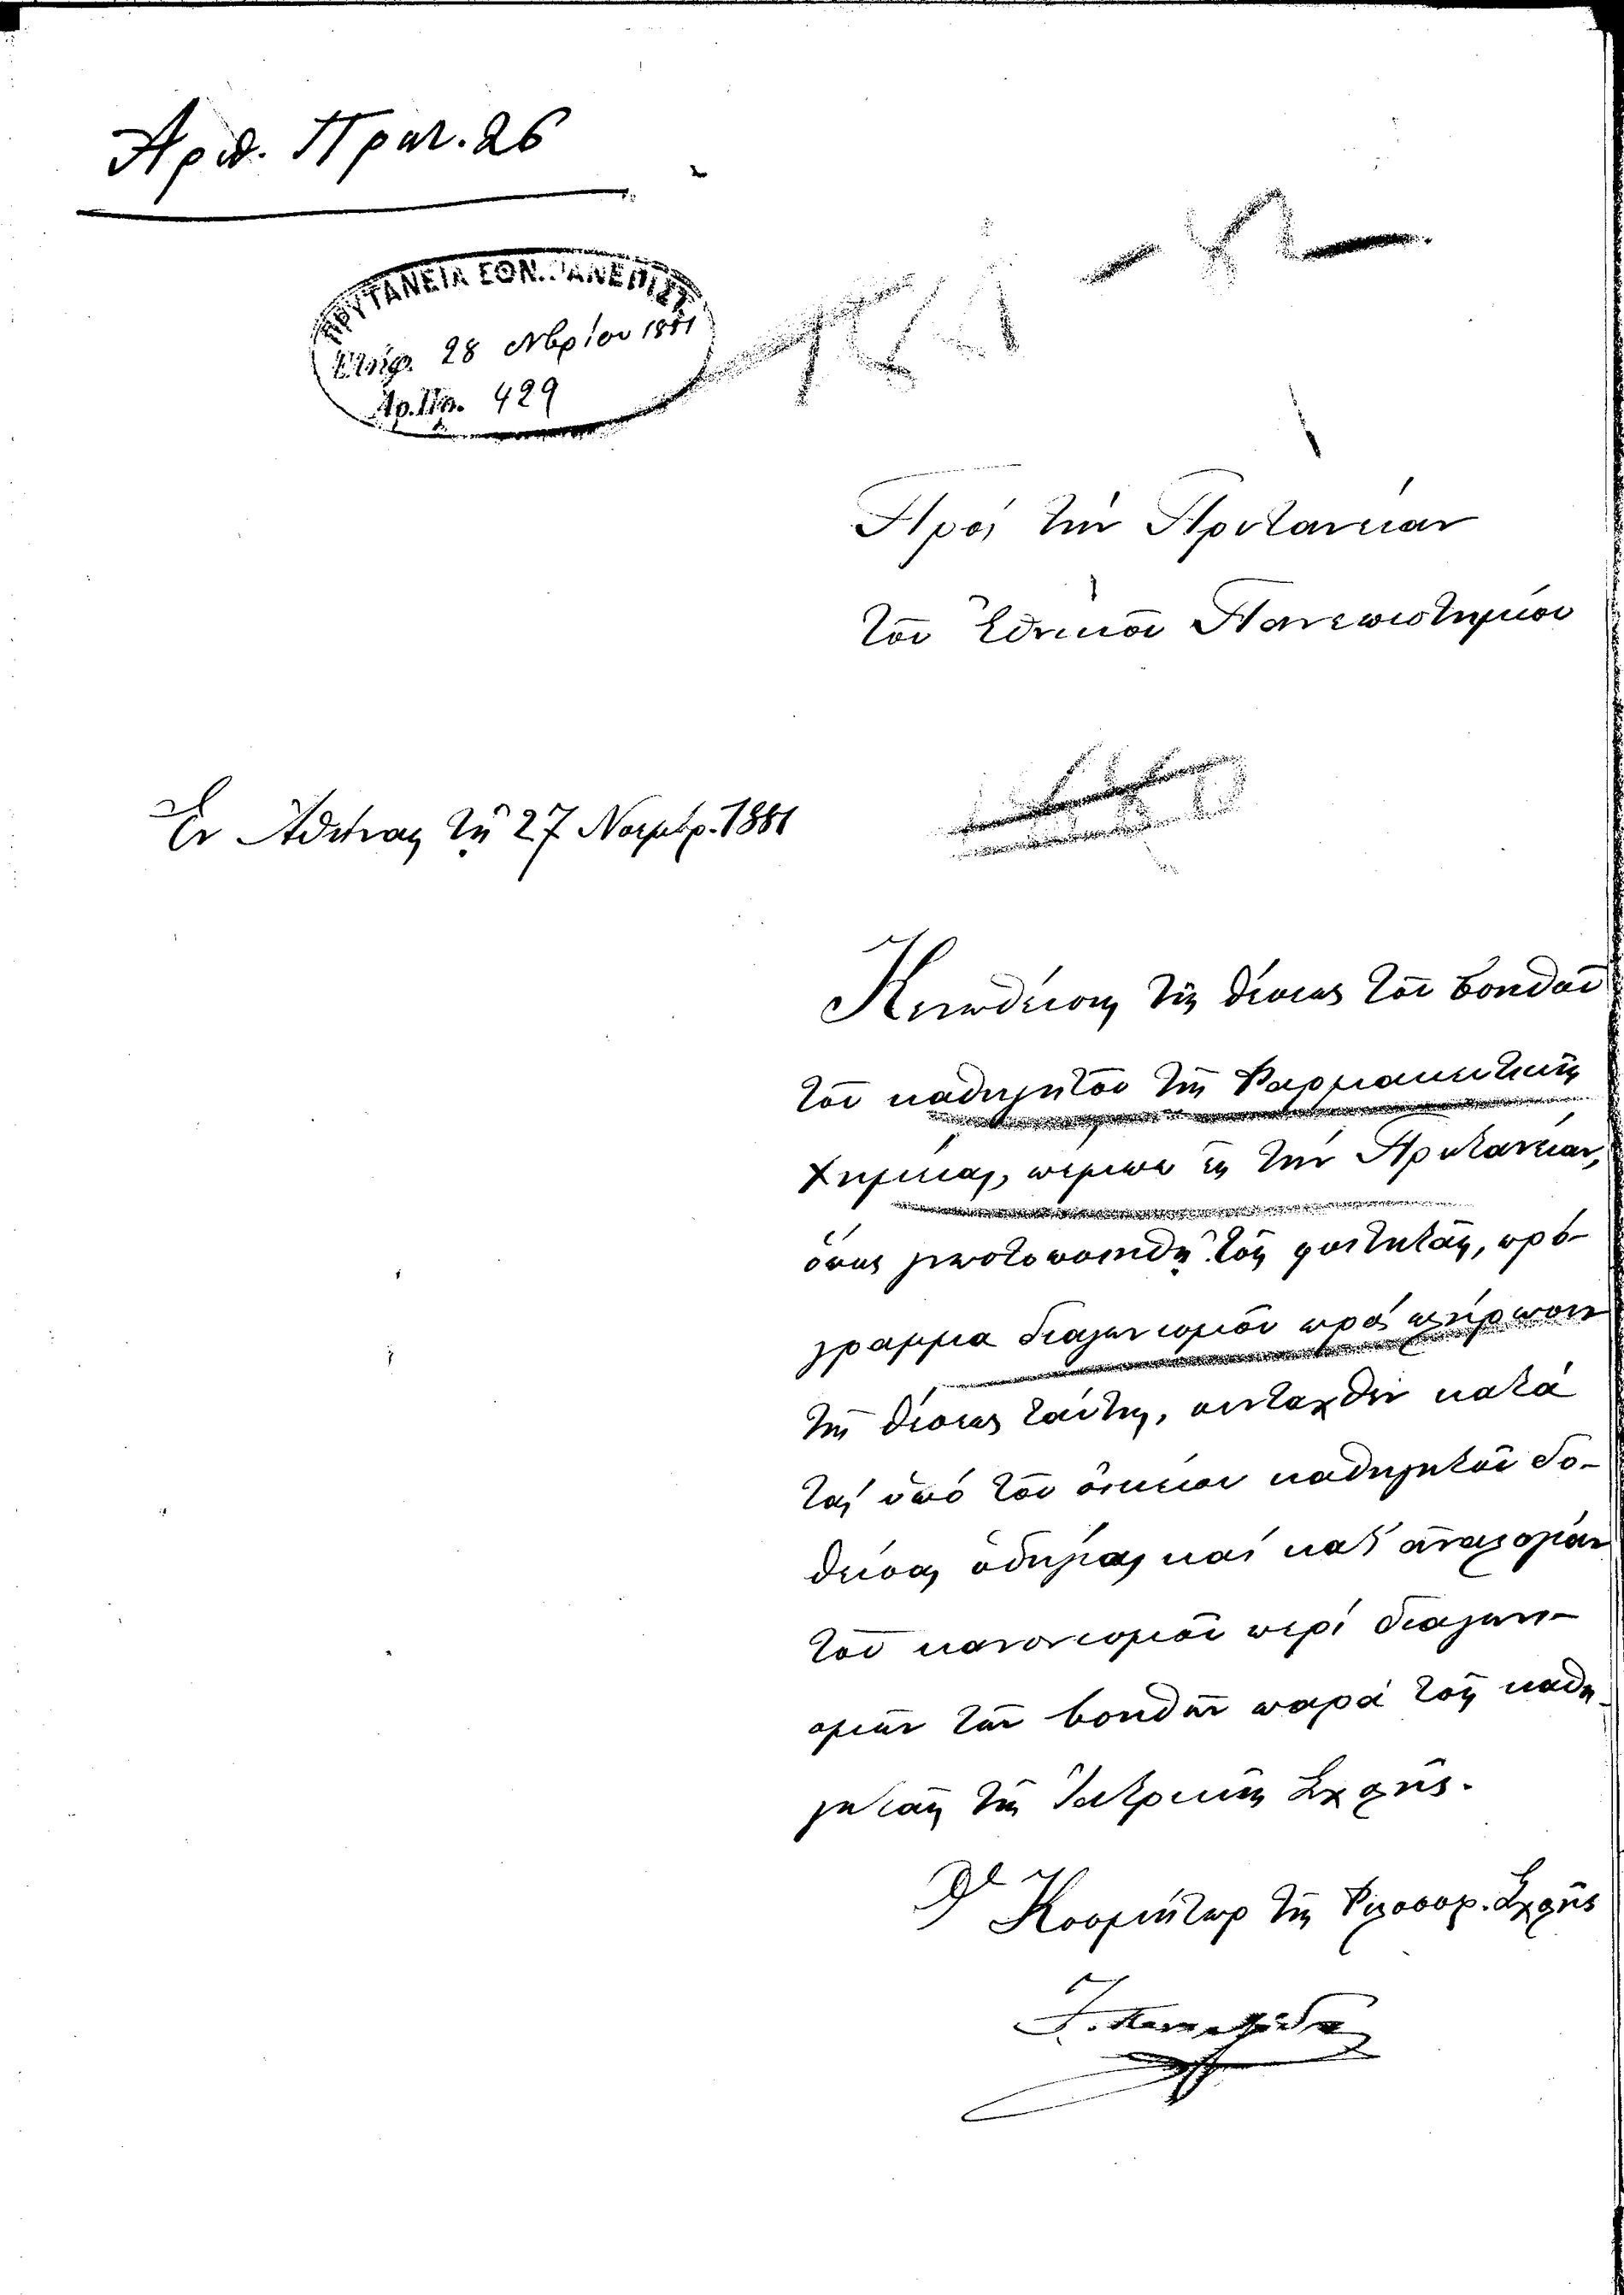 Ἀριθ. Πρωτ. 26
ΠΡΥΤΑΝΕΙΑ ΕΘΝ. ΠΑΝΕΠΙΣΤ.
Ἐλήφ. 28 Νβρίου 1881
Ἀρ. Πρ. 429
Πρὸς τὴν Πρυτανείαν
τοῦ Ἐθνικοῦ Πανεπιστημίου
Ἐν Ἀθήναις τῇ 27 Νοεμβρ. 1881
Κενωθείσης τῆς θέσεως τοῦ βοηθοῦ
τοῦ καθηγητοῦ τῆς Φαρμακευτικῆς
Χημείας, πέμπω εἰς τὴν Πρυτανείαν,
ὅπως γνωστοποιηθῇ τοῖς φοιτηταῖς, πρό-
γραμμα διαγωνισμοῦ πρὸς πλήρωσιν
τῆς θέσεως ταύτης, συνταχθὲν κατὰ
τὰς ὑπὸ τοῦ οἰκείου καθηγητοῦ δο-
θείσας ὁδηγίας καὶ κατ' ἀναλογίαν
τοῦ κανονισμοῦ περὶ διαγωνι-
σμῶν τῶν βοηθῶν παρὰ τοῖς καθη-
γηταῖς τῆς Ἰατρικῆς Σχολῆς.
Ὁ Κοσμήτωρ τῆς Φιλοσοφ. Σχολῆς